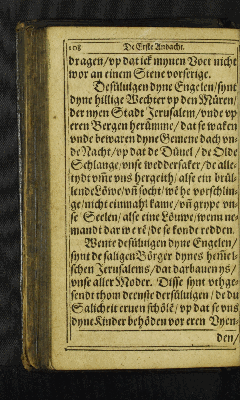 108 De Erste Andacht.
dragen/ vp dat ick mynen Voet nicht
wor an einem Stene vorserige.
Desüluigen dyne Engelen/ synt
dyne hillige Wechter vp den Müren/
der nyen Stadt Jerusalem/ vnde vp
eren Bergen herümme/ dat se waken
vnde bewaren dyne Gemene dach vn-
de Nacht/ vp dat de Düuel/ de Olde
Schlange/ vnse weddersaker/ de alle-
tydt vm̃e vns hergeith/ alse ein brül-
lende Löwe/ vñ socht/ wẽ he vorschlin-
ge/ nicht einmahl kame/ vñ grype vn-
se Seelen/ alse eine Löuwe/ wenn ne-
mandt dar were/ de se konde redden.
Wente desüluigen dyne Engelen/
synt de saligen Börger dynes hem̃el-
schen Jerusalems/ dat darbauen ys/
vnse aller Moder. Disse synt vthge-
sendt thom denste dersüluigen/ de du
Salicheit eruen schölẽ/ vp dat se vns
dyne Kinder behöden vor eren Vyen-
den/